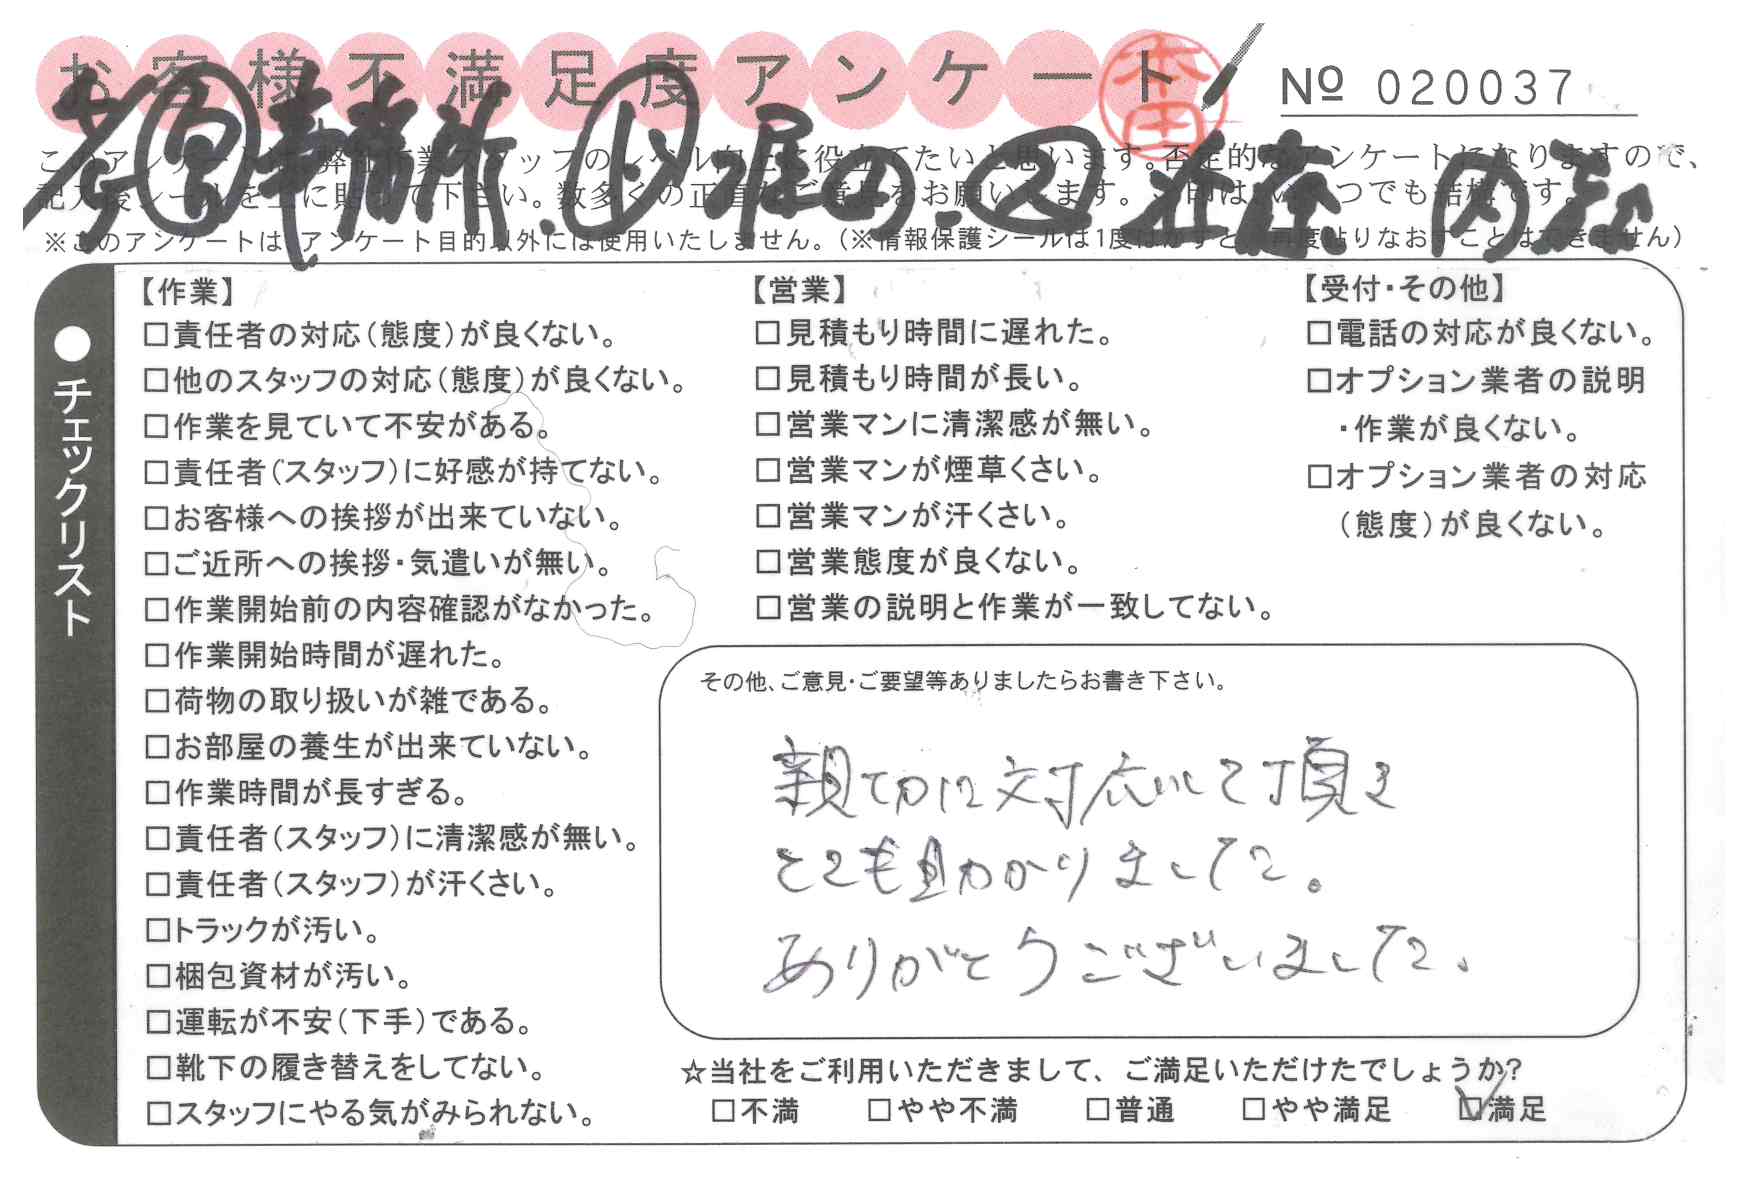 お客様不満足度アンケート
本田
№ 020037
このアンケートは、弊社作業スタッフのレベル向上に役立てたいと思います。否定的なアンケートになりますので、
記入後シールを上に貼って下さい。数多くの正直なご意見をお願いします。
※このアンケートは、アンケート目的以外には使用いたしません。(※情報保護シールは1度はがすと、再度貼りなおすことはできません)
●チェックリスト
【作業】
□責任者の対応(態度)が良くない。
□他のスタッフの対応(態度)が良くない。
□作業を見ていて不安がある。
□責任者(スタッフ)に好感が持てない。
□お客様への挨拶が出来ていない。
□ご近所への挨拶・気遣いが無い。
□作業開始前の内容確認がなかった。
□作業開始時間が遅れた。
□荷物の取り扱いが雑である。
□お部屋の養生が出来ていない。
□作業時間が長すぎる。
□責任者(スタッフ)に清潔感が無い。
□責任者(スタッフ)が汗くさい。
□トラックが汚い。
□梱包資材が汚い。
□運転が不安(下手)である。
□靴下の履き替えをしてない。
□スタッフにやる気がみられない。
【営業】
□見積もり時間に遅れた。
□見積もり時間が長い。
□営業マンに清潔感が無い。
□営業マンが煙草くさい。
□営業マンが汗くさい。
□営業態度が良くない。
□営業の説明と作業が一致してない。
【受付・その他】
□電話の対応が良くない。
□オプション業者の説明
・作業が良くない。
□オプション業者の対応
(態度)が良くない。
その他、ご意見・ご要望等ありましたらお書き下さい。
親切に対応して頂き
とても助かりました。
ありがとうございました。
☆当社をご利用いただきまして、ご満足いただけたでしょうか?
□不満 □やや不満 □普通 □やや満足 ☑満足